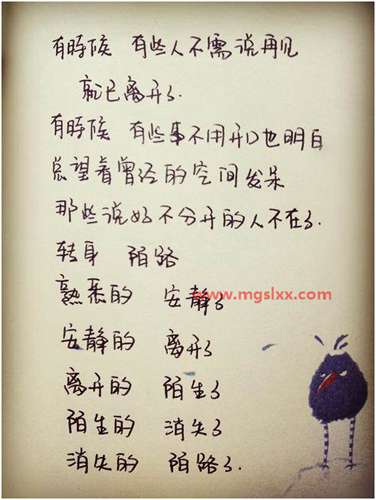 有時候 有些人不需说再见
就已离开了.
有時候 有些事不用开口也明白
总望着曾经的空间发呆
那些说好不分开的人不在了.
转身 陌路
熟悉的 安静了
www.mgslxx.com
安静的 离开了
离开的 陌生了
陌生的 消失了
消失的 陌路了.